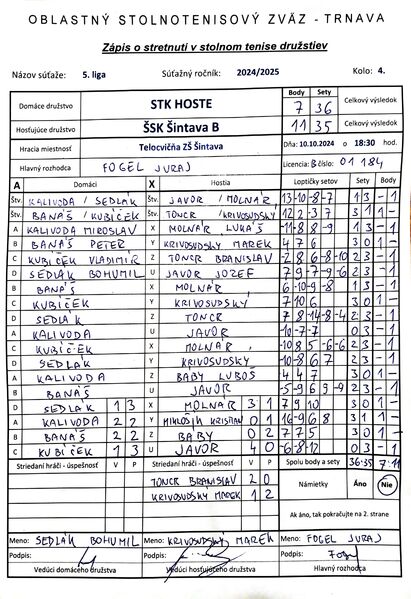 OBLASTNÝ STOLNOTENISOVÝ ZVÄZ - TRNAVA
Zápis o stretnutí v stolnom tenise družstiev
Názov súťaže: 5. liga Súťažný ročník: 2024/2025 Kolo: 4.
Body Sety
Domáce družstvo STK HOSTE 7 36 Celkový výsledok
Hosťujúce družstvo ŠSK Šintava B 11 35 Celkový výsledok
Hracia miestnosť Telocvičňa ZŠ Šintava Dňa: 10.10.2024 o 18:30 hod.
Hlavný rozhodca FOGEL JURAJ Licencia: B číslo: 01 184
A Domáci X Hostia Loptičky setov Sety Body
Štv. KALIVODA / SEDLÁK Štv. JAVOR / MOLNÁR 13 -10 -8 -7 1 3 - 1
Štv. BANÁŠ / KUBÍČEK Štv. TONCR / KRIVOSUDSKY 12 2 -3 7 3 1 1 -
A KALIVODA MIROSLAV X MOLNÁR LUKÁŠ -11 -8 8 -9 1 3 - 1
B BANÁŠ PETER Y KRIVOSUDSKY MAREK 4 7 6 3 0 1 -
C KUBÍČEK VLADIMÍR Z TONCR BRANISLAV -2 8 6 -8 -10 2 3 - 1
D SEDLÁK BOHUMIL U JAVOR JOZEF 7 9 -7 -9 -6 2 3 - 1
B BANÁŠ X MOLNÁR 6 -10 -9 -8 1 3 - 1
C KUBÍČEK Y KRIVOSUDSKY 7 10 6 3 0 1 -
D SEDLÁK Z TONCR 7 8 -14 -8 -4 2 3 - 1
A KALIVODA U JAVOR -10 -7 -7 0 3 - 1
C KUBÍČEK X MOLNÁR -10 8 5 -6 -6 2 3 - 1
D SEDLÁK Y KRIVOSUDSKY -10 8 6 7
A KALIVODA Z BABY LUBOŠ 4 4 7 3 0 1 -
B BANÁŠ U JAVOR -5 -9 6 9 -9 2 3 - 1
D SEDLÁK 1 3 X MOLNÁR 3 1 7 9 10 3 0 1 -
A KALIVODA 2 2 Y MIKLOŠÍK KRISTIAN 0 1 16 -9 6 8 3 1 1 -
B BANÁŠ 2 2 Z BABY 0 2 7 7 5 3 0 1 -
C KUBÍČEK 1 3 U JAVOR 4 0 -6 -8 -12 0 3 - 1
Striedaní hráči - úspešnosť V P Striedaní hráči - úspešnosť V P Spolu body a sety 36:35 7:11
TONCR BRANISLAV 2 0 Námietky Áno Nie
KRIVOSUDSKY MAREK 1 2
Ak áno, tak pokračujte na 2. strane
Meno: SEDLÁK BOHUMIL Meno: KRIVOSUDSKY MAREK Meno: FOGEL JURAJ
Podpis: Podpis: Podpis:
Vedúci domáceho družstva Vedúci hosťujúceho družstva Hlavný rozhodca